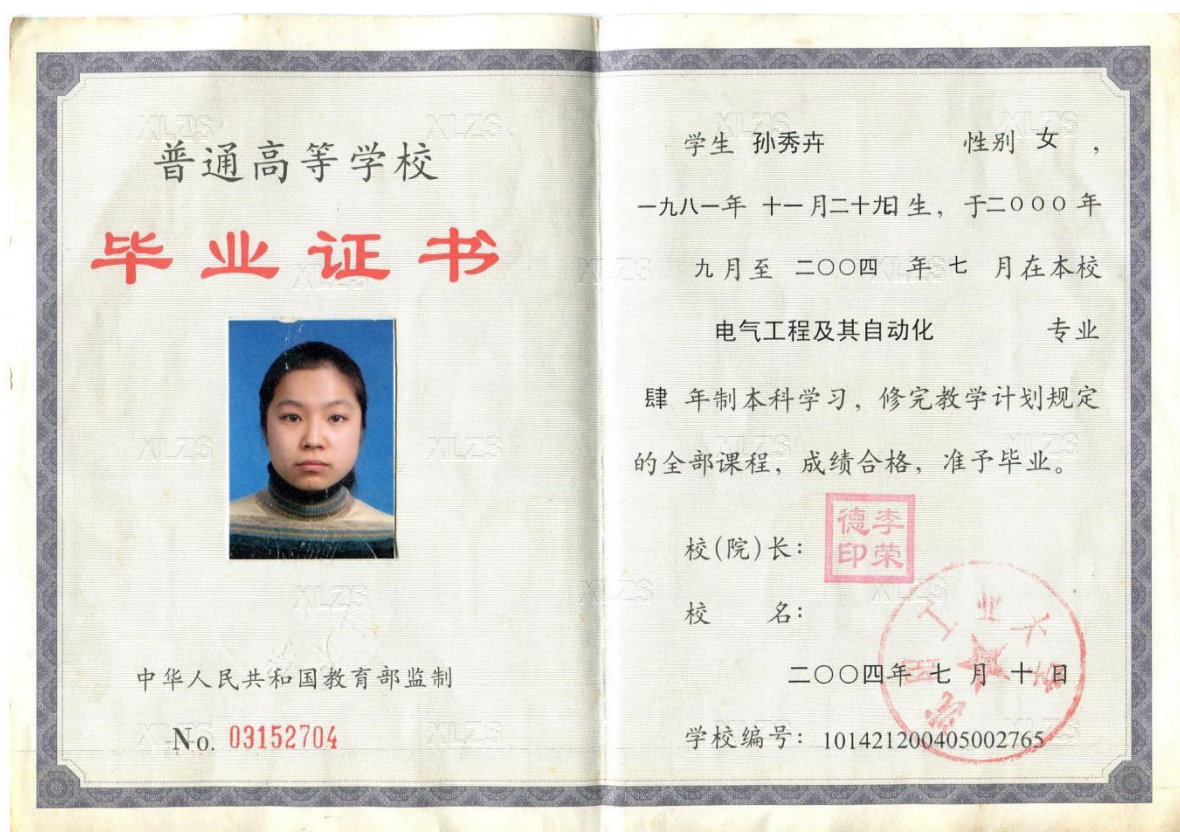 普通高等学校
毕业证书
中华人民共和国教育部监制
No. 03152704
学生 孙秀卉 性别 女 ,
一九八一年 十一月二十九日生, 于二000年
九月至 二〇〇四 年 七 月在本校
电气工程及其自动化 专业
肆 年制本科学习, 修完教学计划规定
的全部课程, 成绩合格, 准予毕业。
校(院)长: 李荣德印
校 名:
工业大学
二〇〇四年 七 月 十 日
学校编号: 101421200405002765
XLZS